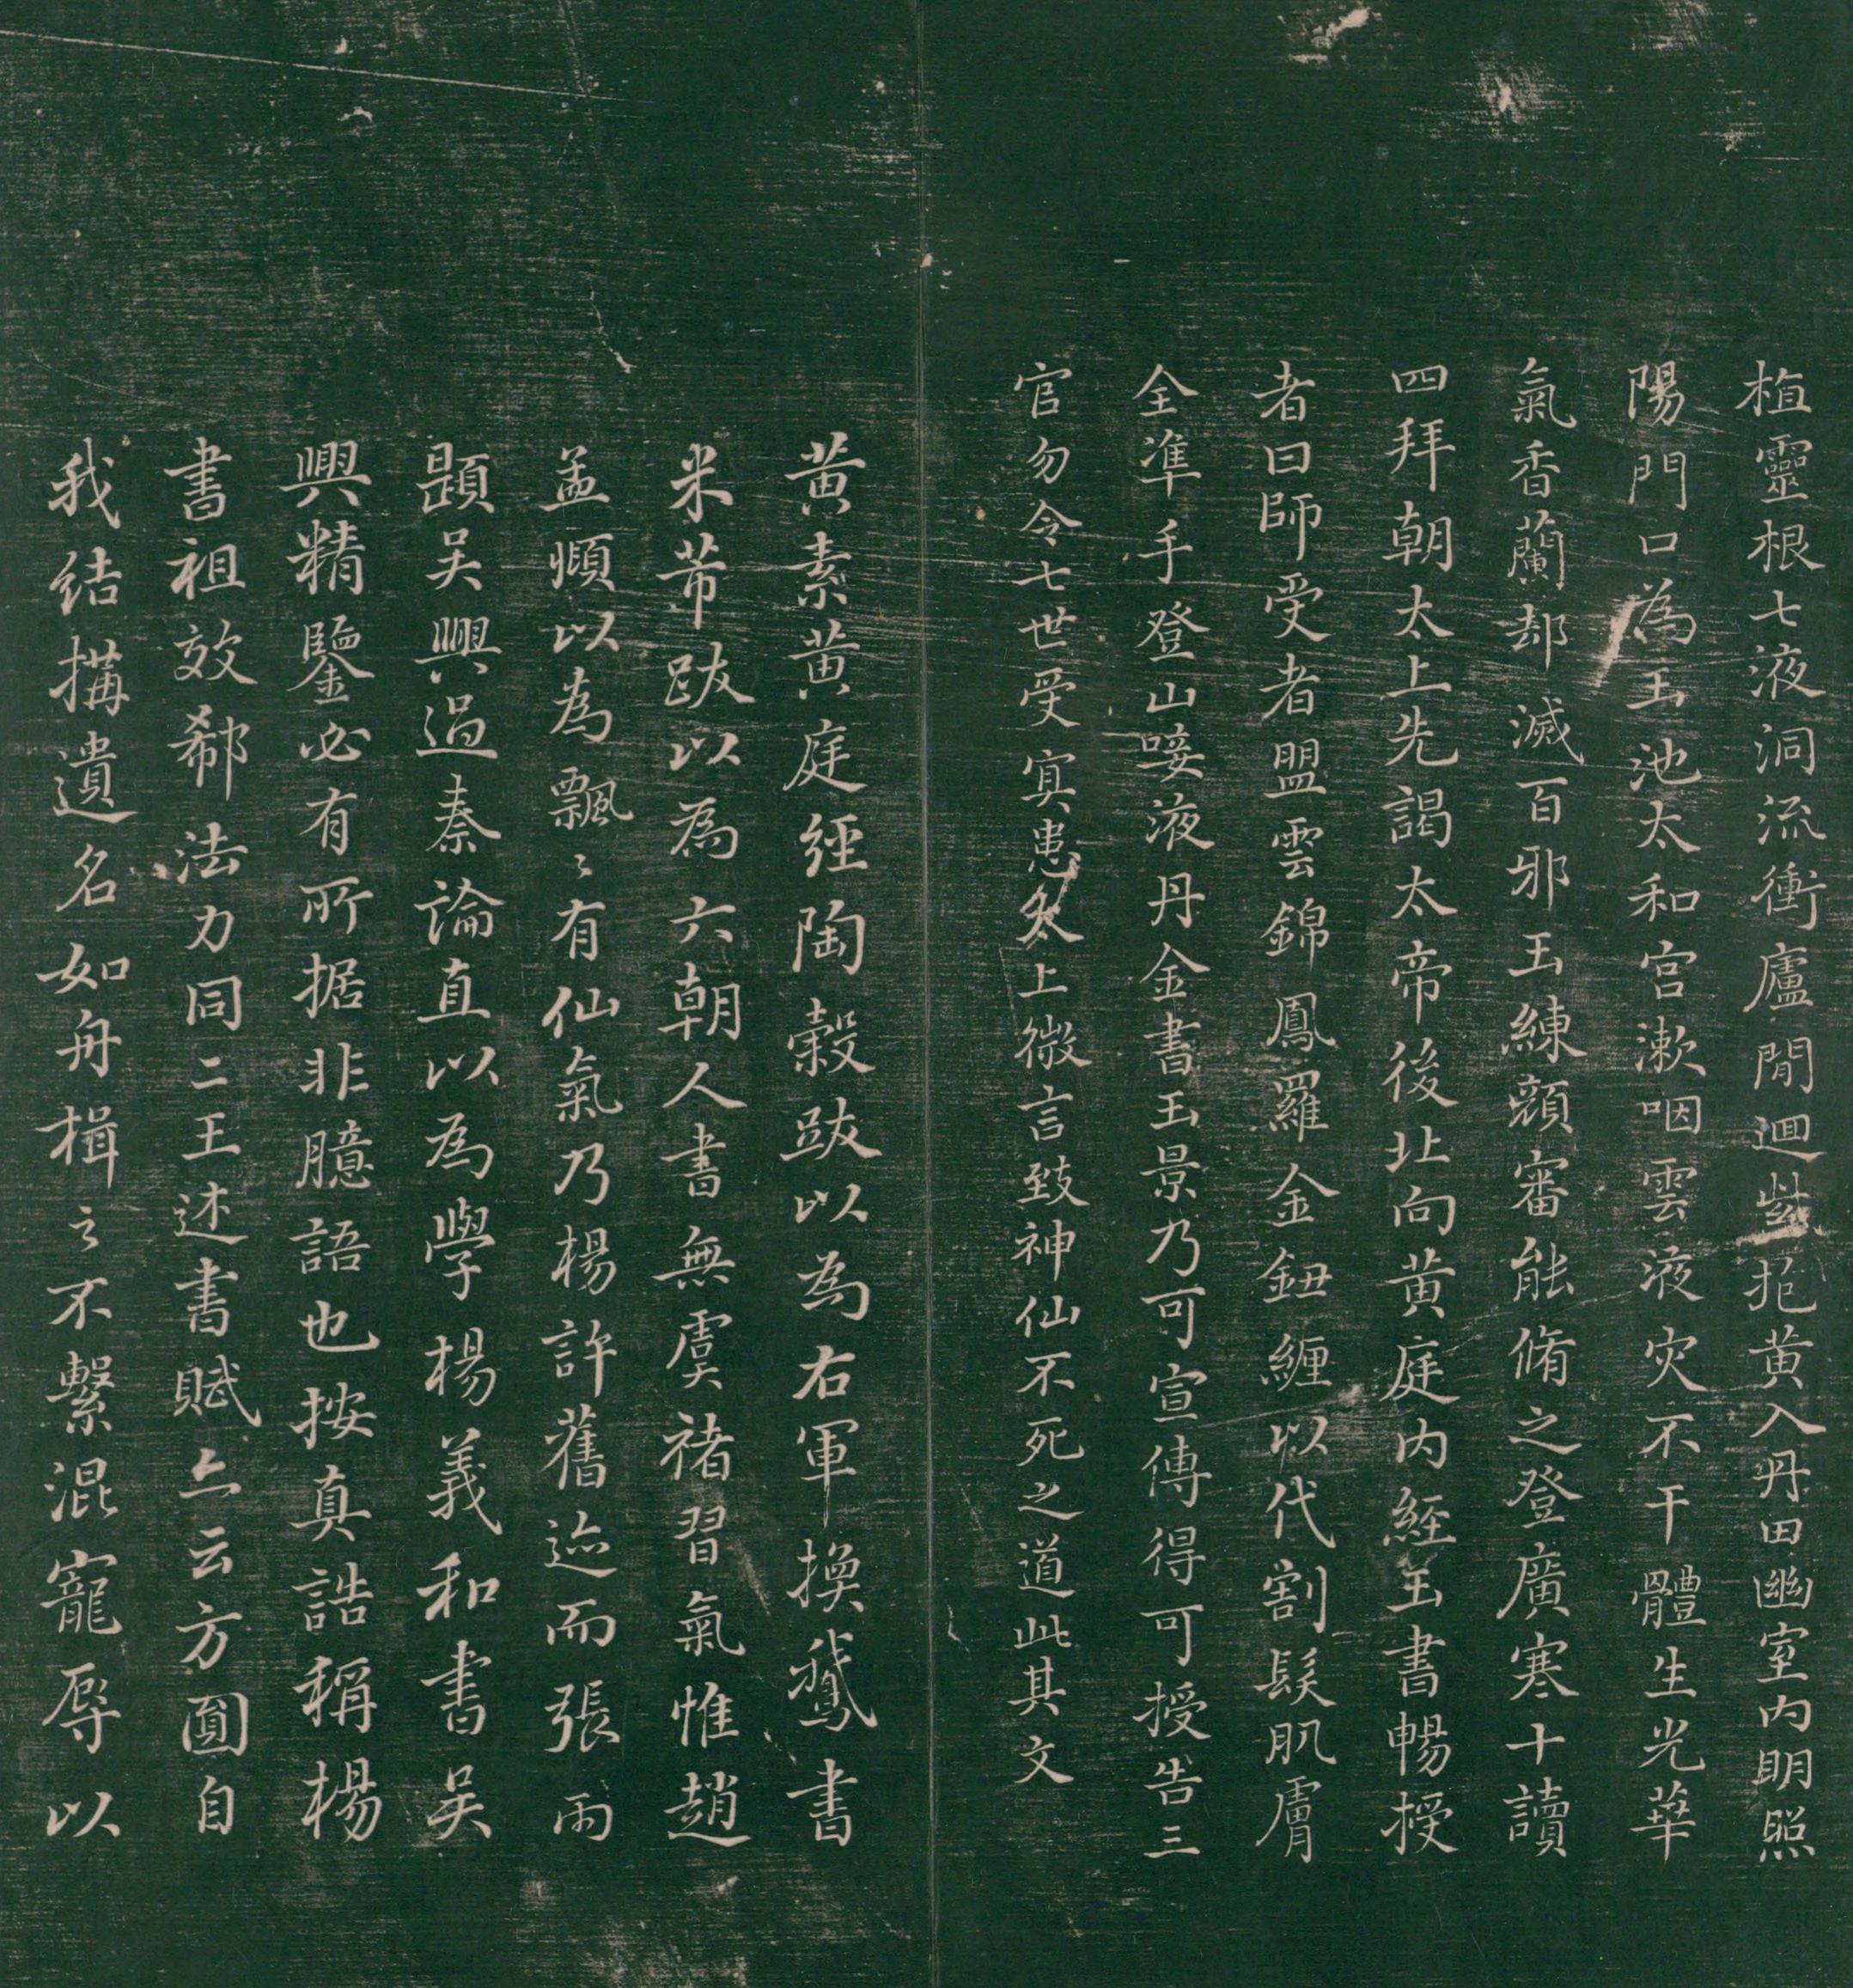 植靈根七液洞流衝廬間迴紫抱黄入丹田幽室内明照
陽門口為玉池太和宫漱咽雲液灾不干體生光華
氣香蘭却滅百邪玉練顔審能脩之登廣寒十讀
四拜朝太上先謁太帝後北向黄庭内經玉書暢授
者曰師受者盟雲錦鳳羅金鈕纏以代割髮肌膚
全準手登山唼液丹金書玉景乃可宣傳得可授告三
官勿令七世受寘患太上微言致神仙不死之道此其文
黄素黄庭經陶榖跋以為右軍換鵝書
米芾跋以為六朝人書無虞褚習氣惟趙
孟頫以為飄〻有仙氣乃楊許舊迹而張雨
題吴興過秦論直以為學楊羲和書吴
興精鑒必有所据非臆語也按真誥稱楊
書祖效郗法力同二王述書賦亦云方圓自
我結搆遺名如舟楫之不繫混寵辱以